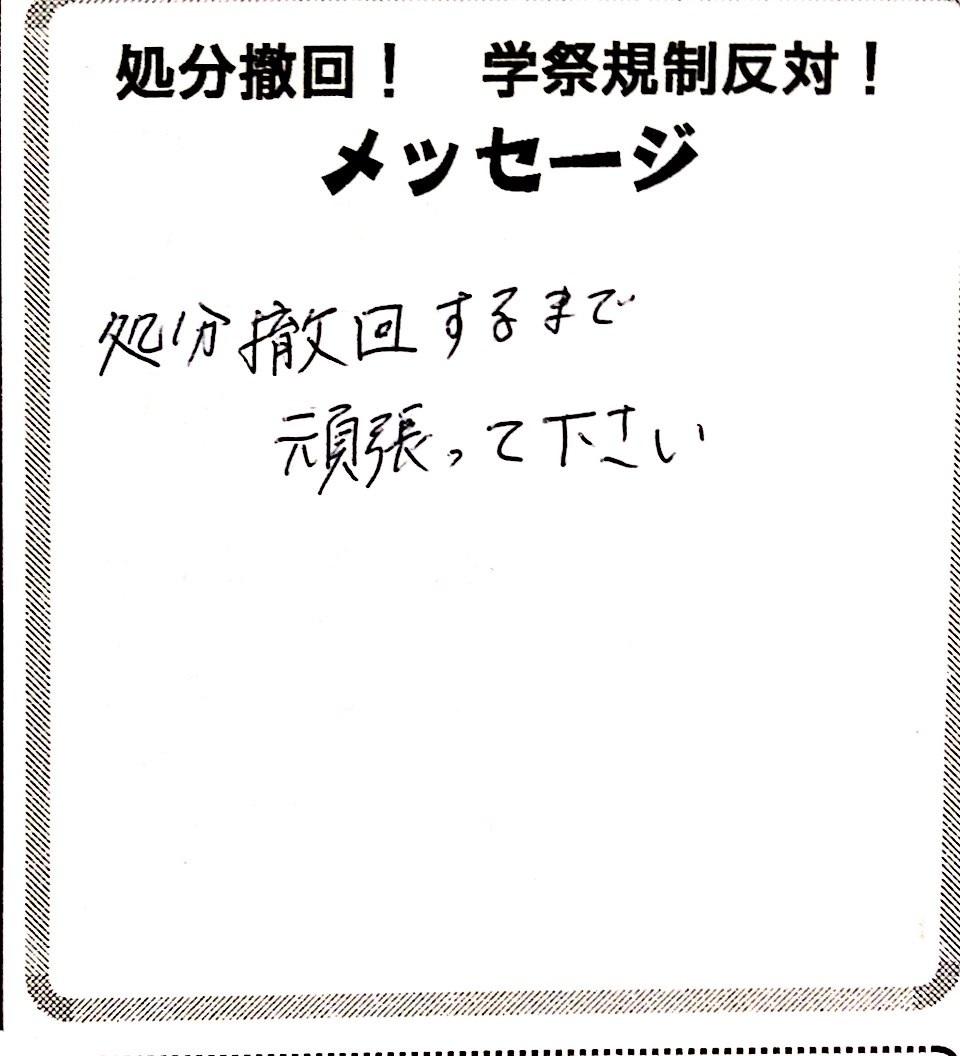 処分撤回！　学祭規制反対！
メッセージ
処分撤回するまで
頑張って下さい